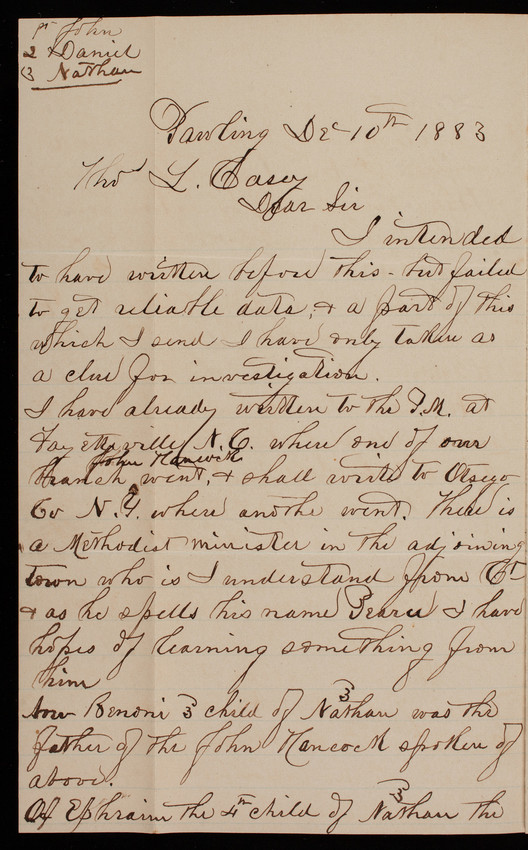 pr John
2 & Daniel
3 Nathan
Pawling Dec 10th 1883
Thos L. Casey
Dear Sir
I intended
to have written before this - but failed
to get reliable data, & a part of this
which I send I have only taken as
a clue for investigation.
I have already written to the P.M. at
Fayetteville, N.C. where one of our
John Hancock
branch went, & shall write to Otsego
Co N.Y. where anothe went. There is
a Methodist minister in the adjoining
town who is I understand from Ct
& as he spells his name Pearce I have
hopes of learning something from
him
Now Benoni 3 child of Nathan 3 was the
father of the John Hancock spoken of
above.
Of Ephraim the 4th child of Nathan 3 the